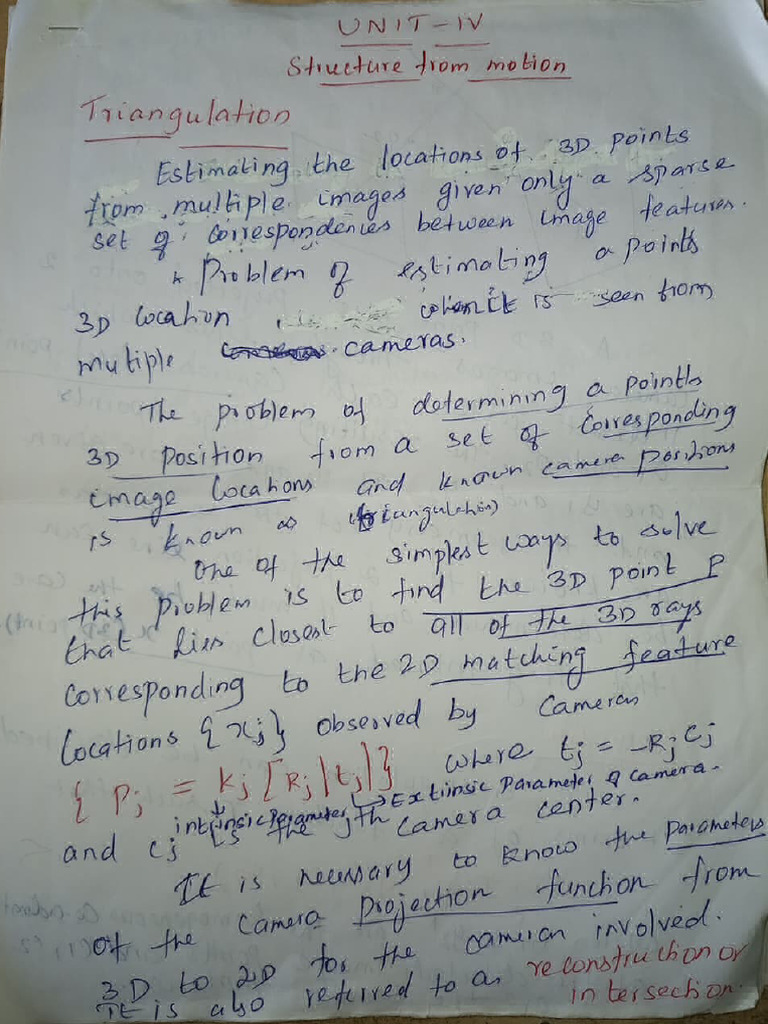 UNIT-IV
Structure from motion
Triangulation
Estimating the locations of 3D points
from multiple images given only a sparse
set of correspondencies between image features.
* Problem of estimating a points
3D location when it is seen from
mutiple cameras.
The problem of determining a points
3D position from a set of corresponding
image locations and known camera positions
is known as triangulation
One of the simplest ways to solve
this problem is to find the 3D point P
that lies closest to all of the 3D rays
corresponding to the 2D matching feature
locations {xj} observed by cameras
{Pj = Kj [Rj|tj]} where tj = -Rj cj
intrinsic parameter → Extrinsic Parameter of camera.
and cj is the jth camera center.
It is necessary to know the parameters
of the camera projection function from
3D to 2D for the cameras involved.
It is also referred to as reconstruction or
intersection.